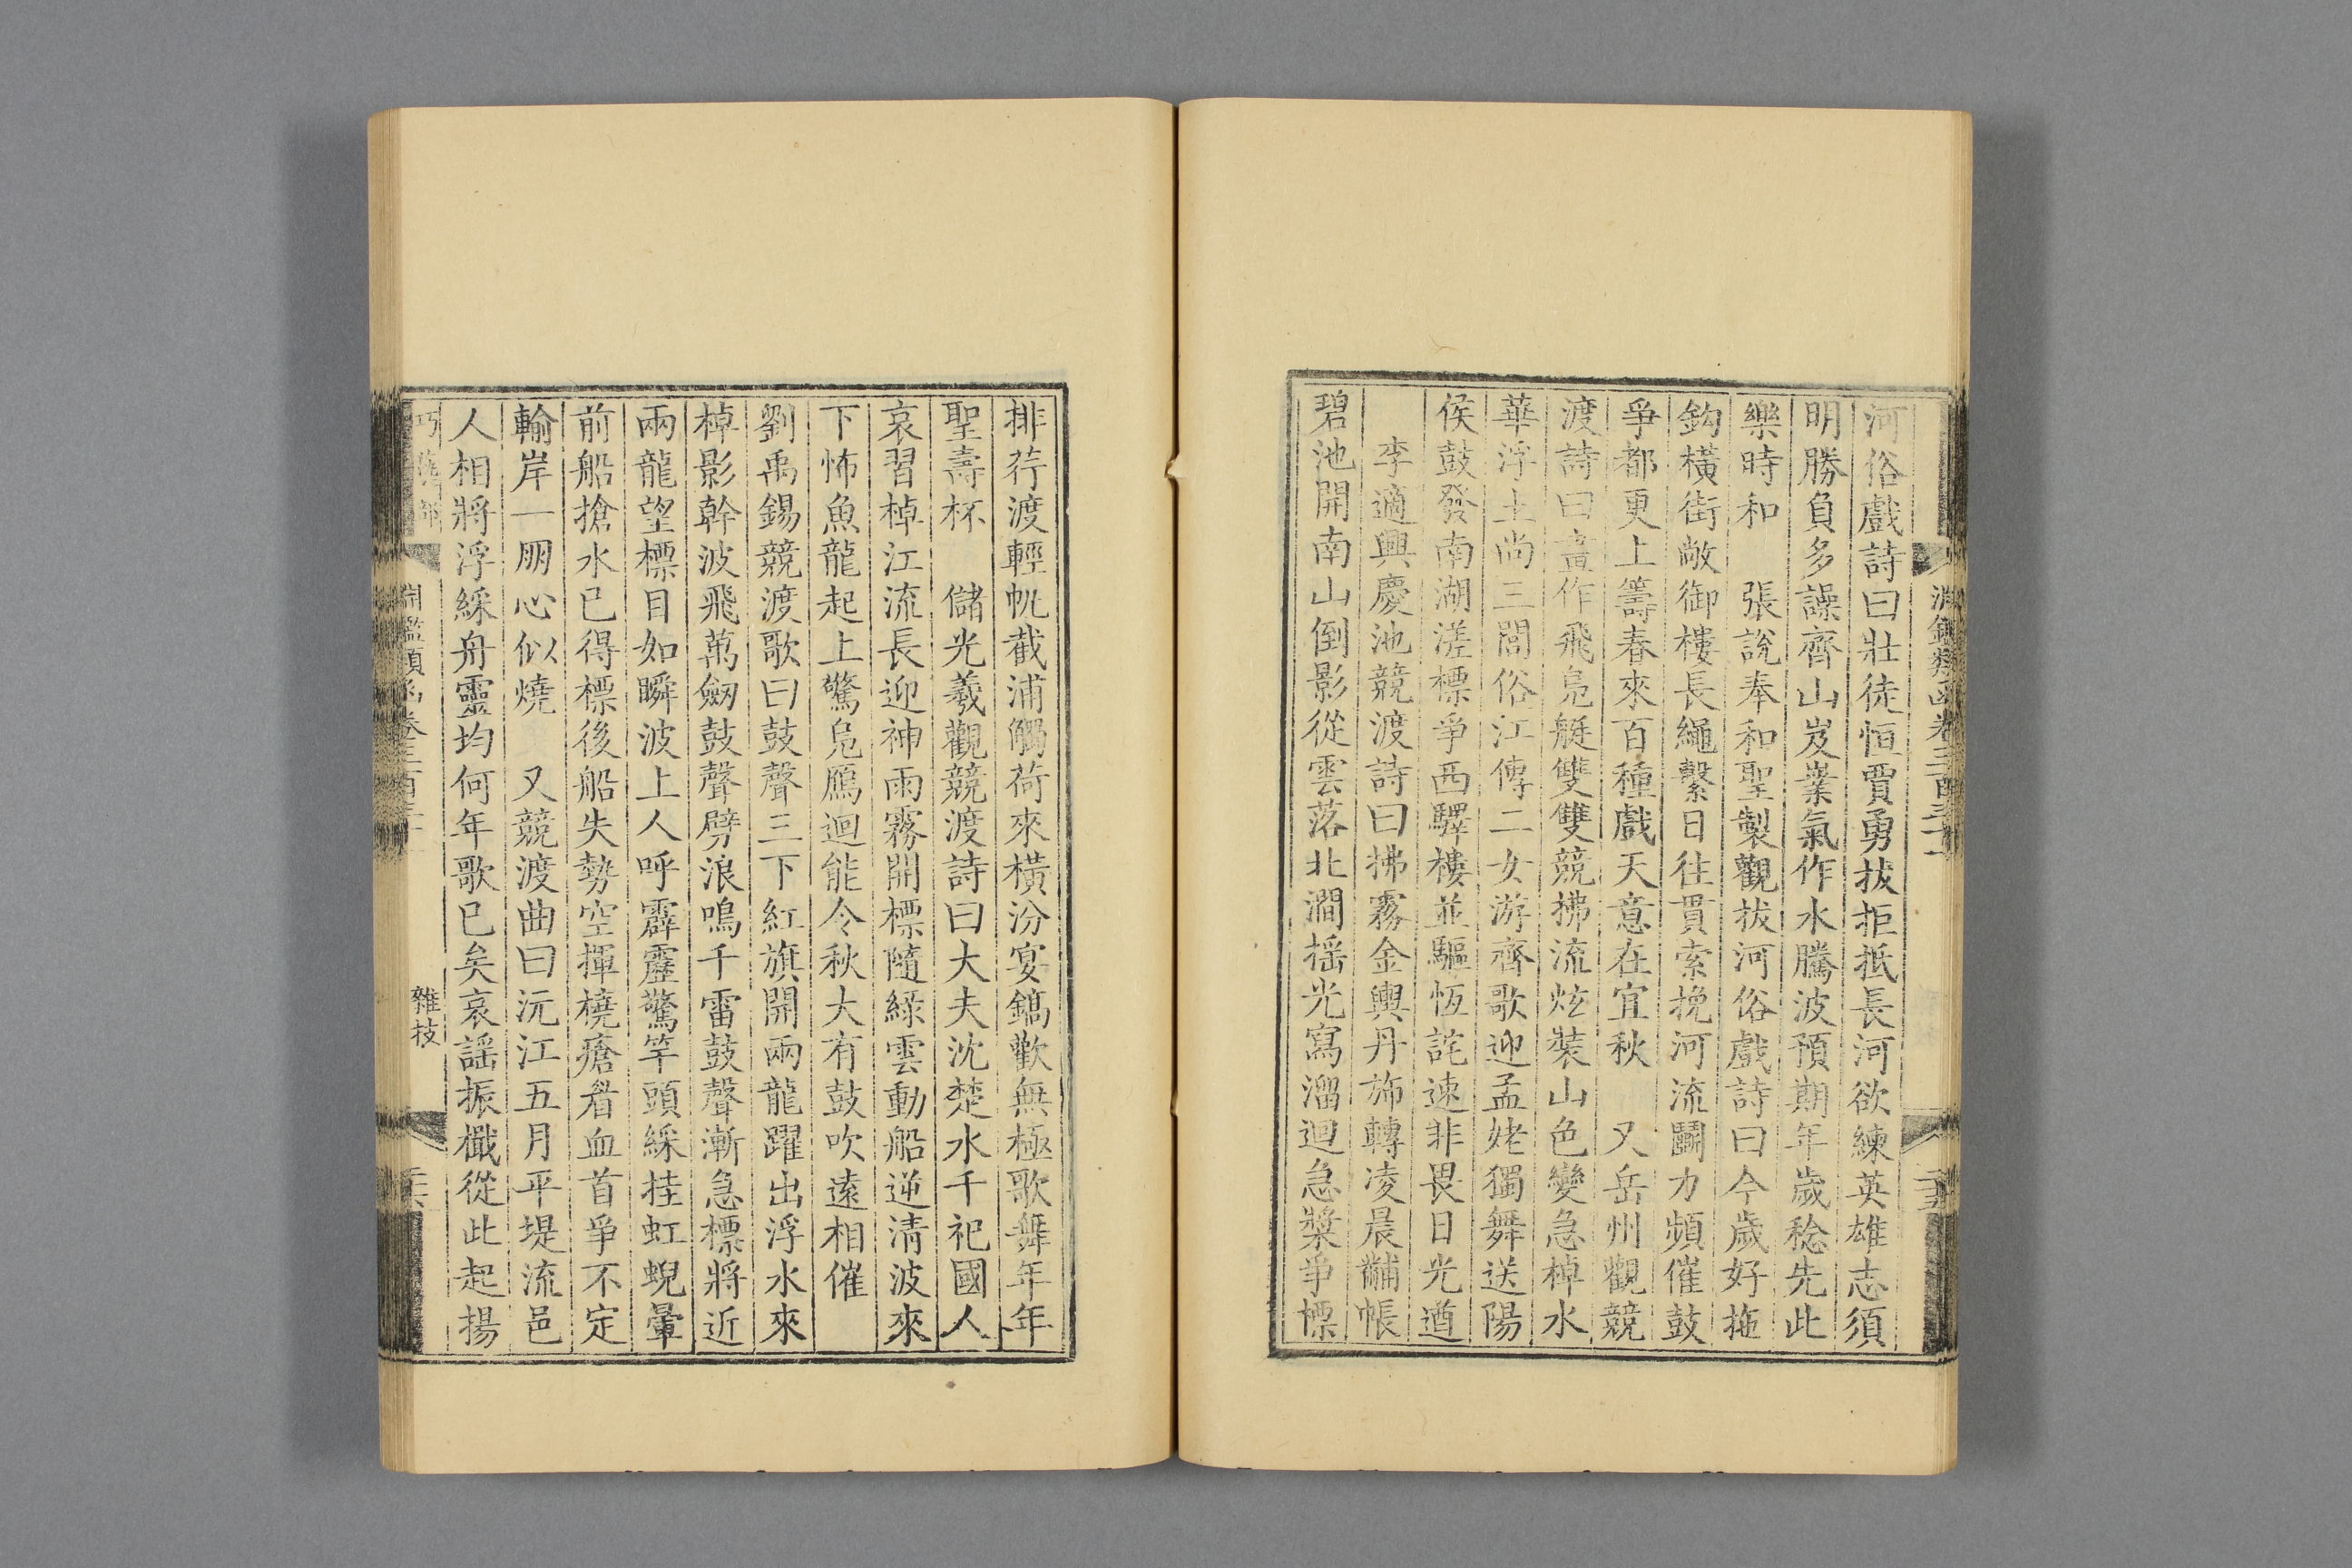 河俗戲詩曰壯徒恒賈勇拔拒抵長河欲練英雄志須
明勝負多譟齊山岌嶪氣作水騰波預期年歲稔先此
樂時和　張說奉和聖製觀拔河俗戲詩曰今歲好拖
鈎橫街敞御樓長繩繫日住貫索挽河流鬬力頻催鼓
爭都更上籌春來百種戲天意在宜秋　又岳州觀競
渡詩曰畫作飛鳧艇雙雙競拂流炫裝山色變急棹水
華浮土尚三閭俗江傳二女游齊歌迎孟姥獨舞送陽
侯鼓發南湖溠標爭西驛樓並驅恆詫速非畏日光遒
李適興慶池競渡詩曰拂霧金輿丹旆轉凌晨黼帳
碧池開南山倒影從雲落北澗搖光寫溜迴急槳爭標
排荇渡輕帆截浦觸荷來橫汾宴鎬歡無極歌舞年年
聖壽杯　儲光羲觀競渡詩曰大夫沈楚水千祀國人
哀習棹江流長迎神雨霧開標隨綠雲動船逆清波來
下怖魚龍起上驚鳧鴈迴能令秋大有鼓吹遠相催
劉禹錫競渡歌曰鼓聲三下紅旗開兩龍躍出浮水來
棹影斡波飛萬劒鼓聲劈浪鳴千雷鼓聲漸急標將近
兩龍望標目如瞬波上人呼霹靂驚竿頭綵挂虹蜺暈
前船搶水已得標後船失勢空揮橈瘡眉血首爭不定
輸岸一朋心似燒　又競渡曲曰沅江五月平堤流邑
人相將浮綵舟靈均何年歌已矣哀謠振檝從此起揚
淵鑑類函卷三百三十
雜技